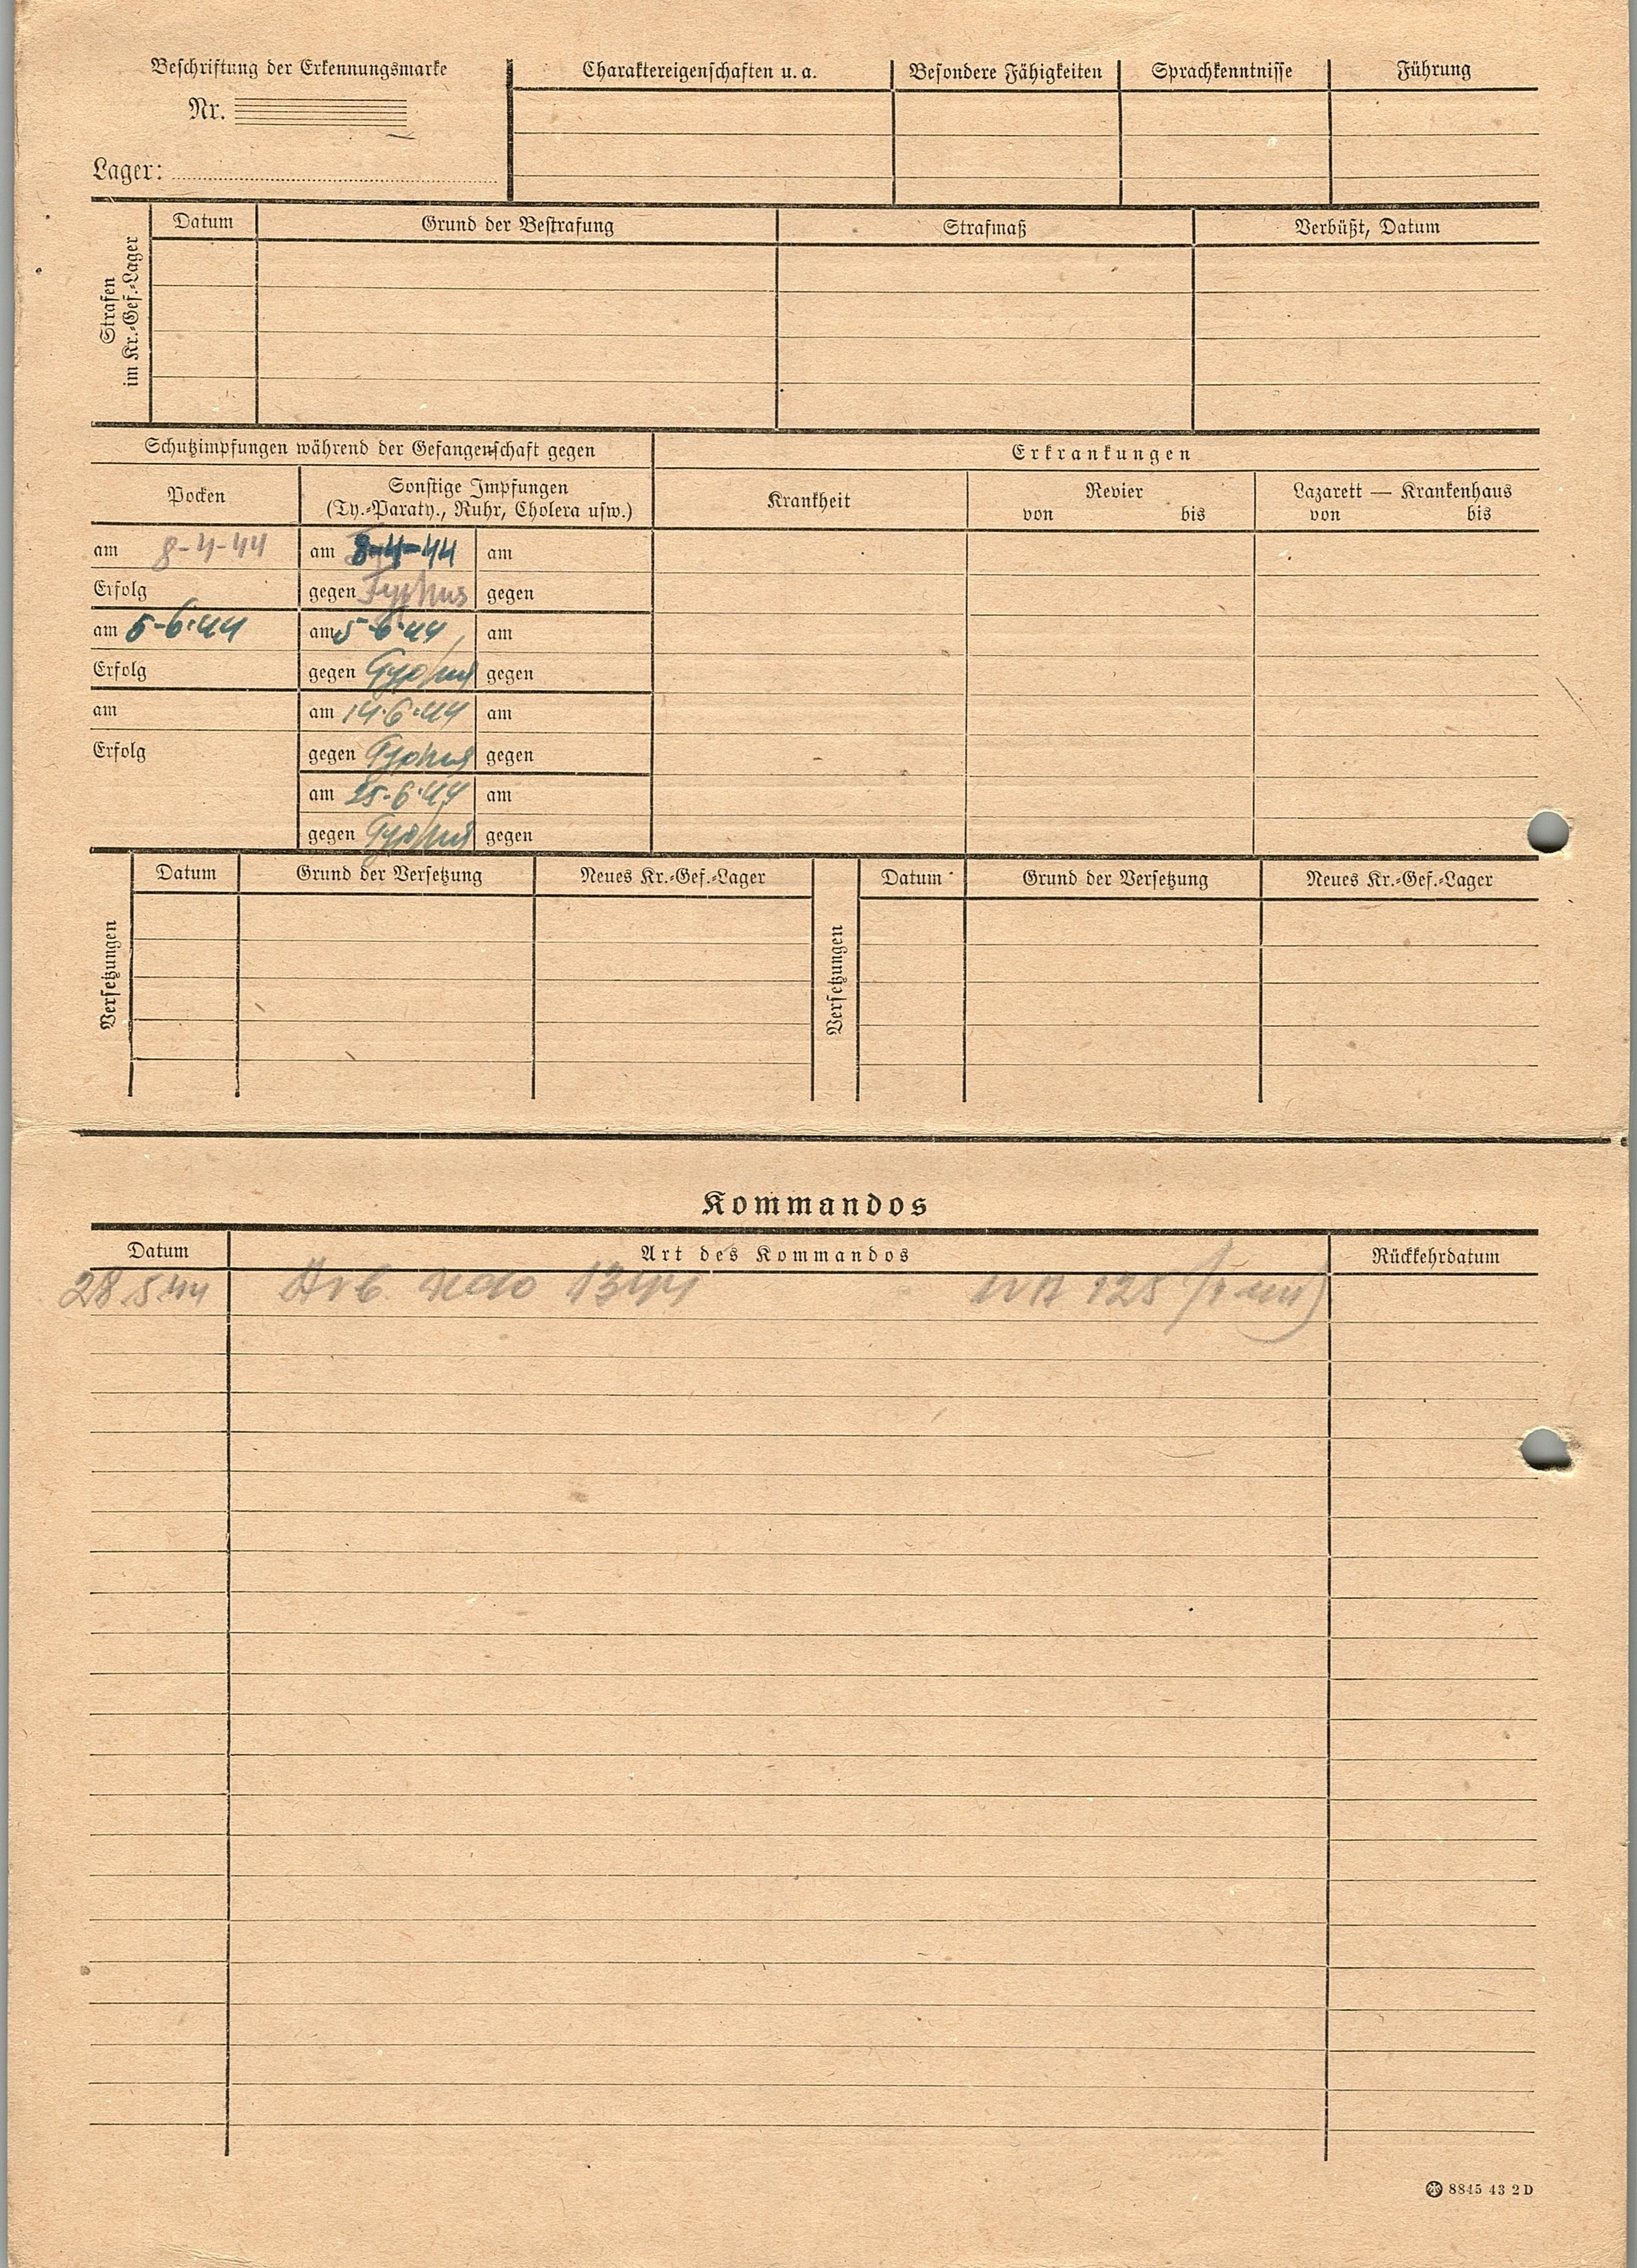 Beschriftung der Erkennungsmarke
Nr.
Lager:
Charaktereigenschaften u. a. Besondere Fähigkeiten Sprachkenntnisse Führung
Strafen
im Kr.-Gef.-Lager
Datum Grund der Bestrafung Strafmaß Verbüßt, Datum
Schutzimpfungen während der Gefangenschaft gegen Erkrankungen
Pocken
Sonstige Impfungen
(Ty.-Paraty., Ruhr, Cholera usw.)
Krankheit
Revier
von bis
Lazarett — Krankenhaus
von bis
am 8-4-44 am 8-4-44 am
Erfolg gegen Typhus gegen
am 5-6-44 am 5-6-44 am
Erfolg gegen Typhus gegen
am am 14-6-44 am
Erfolg gegen Typhus gegen
am 25-6-44 am
gegen Typhus gegen
Versetzungen
Datum Grund der Versetzung Neues Kr.-Gef.-Lager
Versetzungen
Datum Grund der Versetzung Neues Kr.-Gef.-Lager
Kommandos
Datum Art des Kommandos Rückkehrdatum
28.5.44 Arb. 1344 125
8845 43 2 D